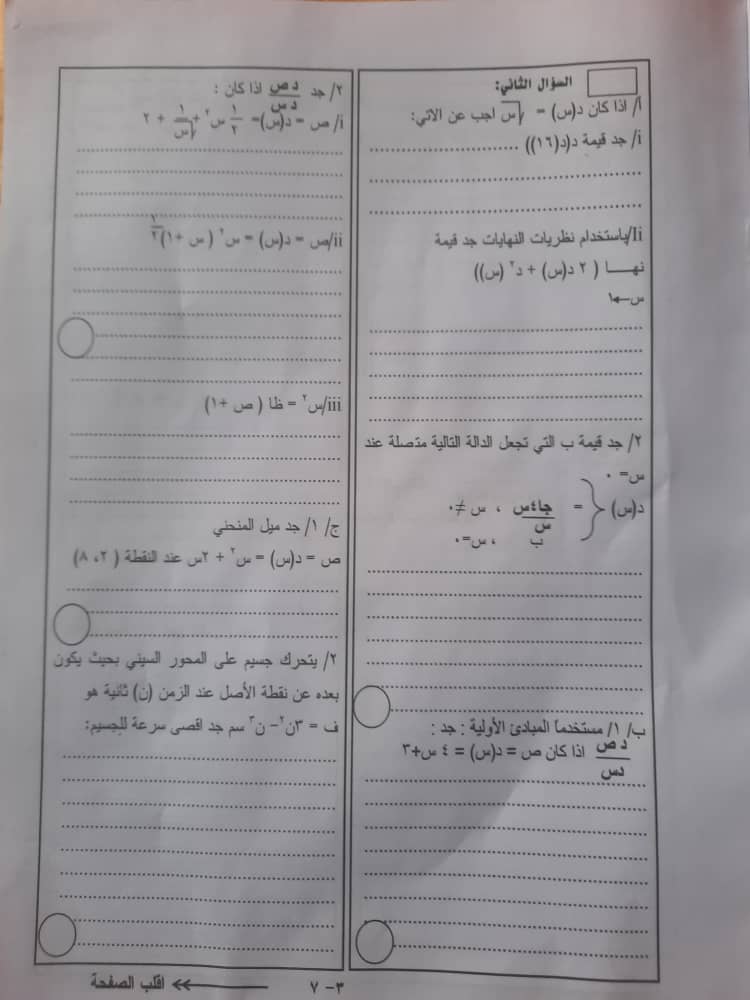 السؤال الثاني:
أ/ اذا كان د(س) = √س اجب عن الاتي:
i/ جد قيمة د(د(١٦)) ......................
Ii/باستخدام نظريات النهايات جد قيمة
نهـــا ( ٢ د(س) + د٢ (س))
س←١
٢/ جد قيمة ب التي تجعل الدالة التالية متصلة عند
س= ٠
د(س) = { جا٤س/س ، س ≠٠
ب ، س=٠
ب/ ١/ مستخدماً المبادئ الأولية : جد :
د ص/دس اذا كان ص = د(س) = ٤ س+٣
٢/ جد د ص/د س اذا كان :
i/ ص = د(س)= ١/٢ س٢ + ١/√س + ٢
ii/ص = د(س) = س٢ ( س +١)١/٢
iii/س٢ = ظا ( ص +١)
ج/ ١/ جد ميل المنحني
ص = د(س) = س٢ + ٢س عند النقطة ( ٢، ٨)
٢/ يتحرك جسيم على المحور السيني بحيث يكون
بعده عن نقطة الأصل عند الزمن (ن) ثانية هو
ف = ٣ن٢– ن٣ سم جد اقصى سرعة للجسيم:
٣- ٧
اقلب الصفحة